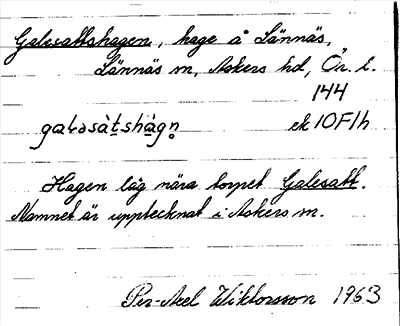 Galesattshagen, hage å Lännäs,
Lännäs sn, Askers hd, Ör. l.
144
galəsàt̲shàgn̥ ek 10F1h
Hagen låg nära torpet Galesatt.
Namnet är upptecknat i Askers sn.
Per-Axel Wiktorsson 1963